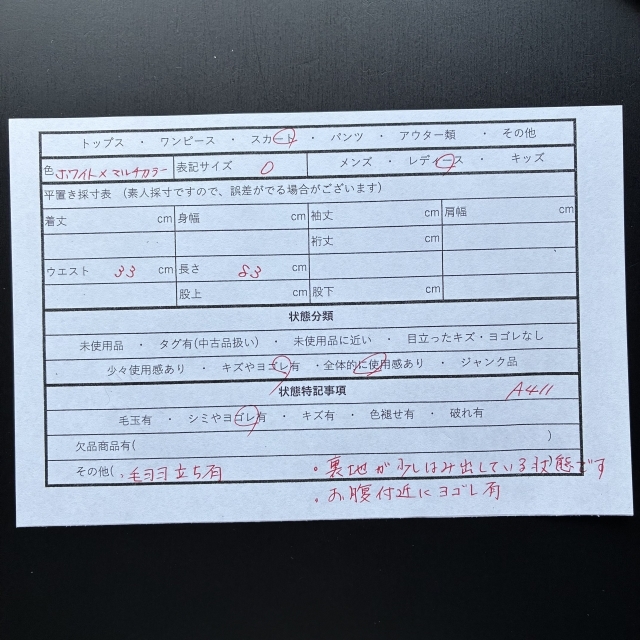 トップス ・ ワンピース ・ スカート ・ パンツ ・ アウター類 ・ その他
色 ホワイト×マルチカラー 表記サイズ 0 メンズ ・ レディース ・ キッズ
平置き採寸表 (素人採寸ですので、誤差がでる場合がございます)
着丈 cm 身幅 cm 袖丈 cm 肩幅 cm
裄丈 cm
ウエスト 33 cm 長さ 83 cm
股上 cm 股下 cm
状態分類
未使用品 ・ タグ有(中古品扱い) ・ 未使用品に近い ・ 目立ったキズ・ヨゴレなし
少々使用感あり ・ キズやヨゴレ有 ・全体的に使用感あり ・ ジャンク品
状態特記事項 A411
毛玉有 ・ シミやヨゴレ有 ・ キズ有 ・ 色褪せ有 ・ 破れ有
欠品商品有( )
その他( ・毛羽立ち有 ・裏地が少しはみ出している状態です
・お腹付近にヨゴレ有